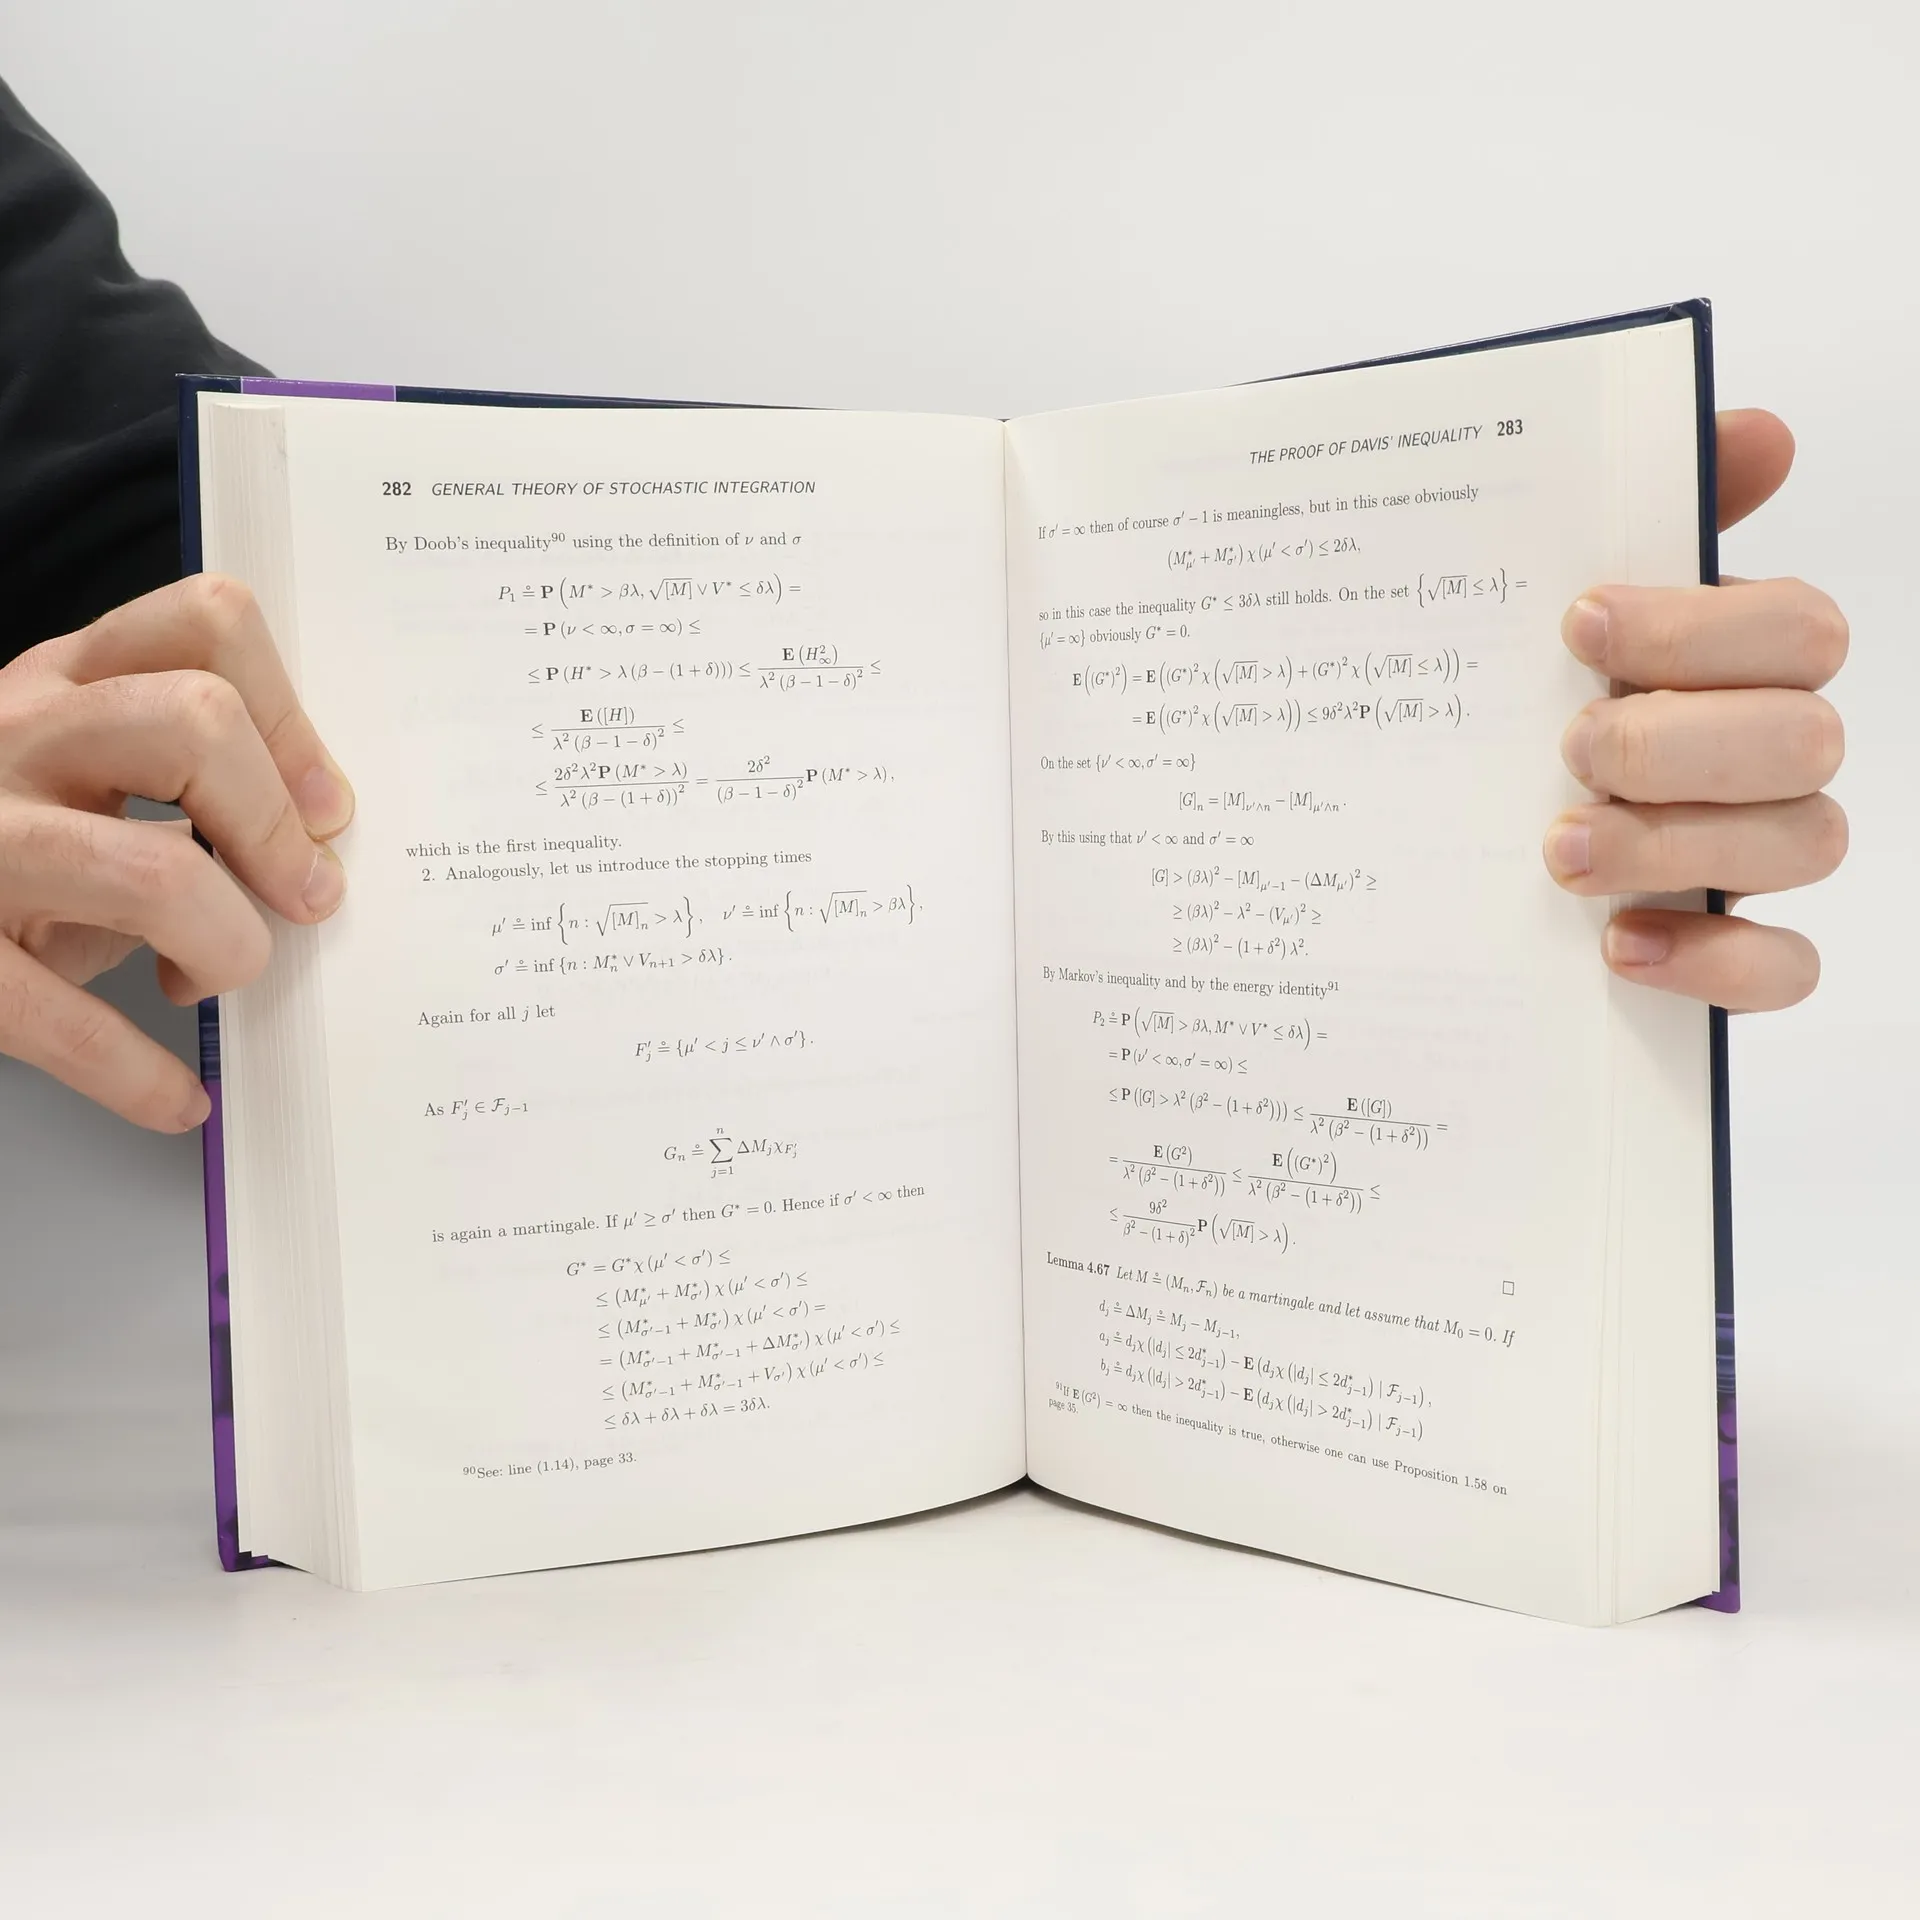 282 GENERAL THEORY OF STOCHASTIC INTEGRATION
By Doob's inequality⁹⁰ using the definition of ν and σ
P₁ ≗ P (M* > βλ, √[M] ∨ V* ≤ δλ) =
= P (ν < ∞, σ = ∞) ≤
≤ P (H* > λ (β − (1 + δ))) ≤ E (H²_∞) / λ² (β − 1 − δ)² ≤
≤ E ([H]) / λ² (β − 1 − δ)² ≤
≤ 2δ²λ²P (M* > λ) / λ² (β − (1 + δ))² = 2δ² / (β − 1 − δ)² P (M* > λ) ,
which is the first inequality.
2. Analogously, let us introduce the stopping times
μ′ ≗ inf {n : √[M]_n > λ} , ν′ ≗ inf {n : √[M]_n > βλ} ,
σ′ ≗ inf {n : M*_n ∨ V_{n+1} > δλ} .
Again for all j let
F′_j ≗ {μ′ < j ≤ ν′ ∧ σ′} .
As F′_j ∈ ℱ_{j−1}
G_n ≗ ∑_{j=1}^{n} ΔM_j χ_{F′_j}
is again a martingale. If μ′ ≥ σ′ then G* = 0. Hence if σ′ < ∞ then
G* = G*χ (μ′ < σ′) ≤
≤ (M*_{μ′} + M*_{σ′}) χ (μ′ < σ′) ≤
≤ (M*_{σ′−1} + M*_{σ′}) χ (μ′ < σ′) =
= (M*_{σ′−1} + M*_{σ′−1} + ΔM*_{σ′}) χ (μ′ < σ′) ≤
≤ (M*_{σ′−1} + M*_{σ′−1} + V_{σ′}) χ (μ′ < σ′) ≤
≤ δλ + δλ + δλ = 3δλ.
⁹⁰See: line (1.14), page 33.
THE PROOF OF DAVIS' INEQUALITY 283
If σ′ = ∞ then of course σ′ − 1 is meaningless, but in this case obviously
(M*_{μ′} + M*_{σ′}) χ (μ′ < σ′) ≤ 2δλ,
so in this case the inequality G* ≤ 3δλ still holds. On the set {√[M] ≤ λ} =
{μ′ = ∞} obviously G* = 0.
E ((G*)²) = E ((G*)² χ (√[M] > λ) + (G*)² χ (√[M] ≤ λ)) =
= E ((G*)² χ (√[M] > λ)) ≤ 9δ²λ²P (√[M] > λ) .
On the set {ν′ < ∞, σ′ = ∞}
[G]_n = [M]_{ν′∧n} − [M]_{μ′∧n} .
By this using that ν′ < ∞ and σ′ = ∞
[G] > (βλ)² − [M]_{μ′−1} − (ΔM_{μ′})² ≥
≥ (βλ)² − λ² − (V_{μ′})² ≥
≥ (βλ)² − (1 + δ²) λ².
By Markov's inequality and by the energy identity⁹¹
P₂ ≗ P (√[M] > βλ, M* ∨ V* ≤ δλ) =
= P (ν′ < ∞, σ′ = ∞) ≤
≤ P ([G] > λ² (β² − (1 + δ²))) ≤ E ([G]) / λ² (β² − (1 + δ²)) =
= E (G²) / λ² (β² − (1 + δ²)) ≤ E ((G*)²) / λ² (β² − (1 + δ²)) ≤
≤ 9δ² / β² − (1 + δ)² P (√[M] > λ) .
□
Lemma 4.67 Let M ≗ (M_n, ℱ_n) be a martingale and let assume that M₀ = 0. If
d_j ≗ ΔM_j ≗ M_j − M_{j−1},
a_j ≗ d_jχ (|d_j| ≤ 2d*_{j−1}) − E (d_jχ (|d_j| ≤ 2d*_{j−1}) | ℱ_{j−1}) ,
b_j ≗ d_jχ (|d_j| > 2d*_{j−1}) − E (d_jχ (|d_j| > 2d*_{j−1}) | ℱ_{j−1})
⁹¹If E (G²) = ∞ then the inequality is true, otherwise one can use Proposition 1.58 on
page 35.